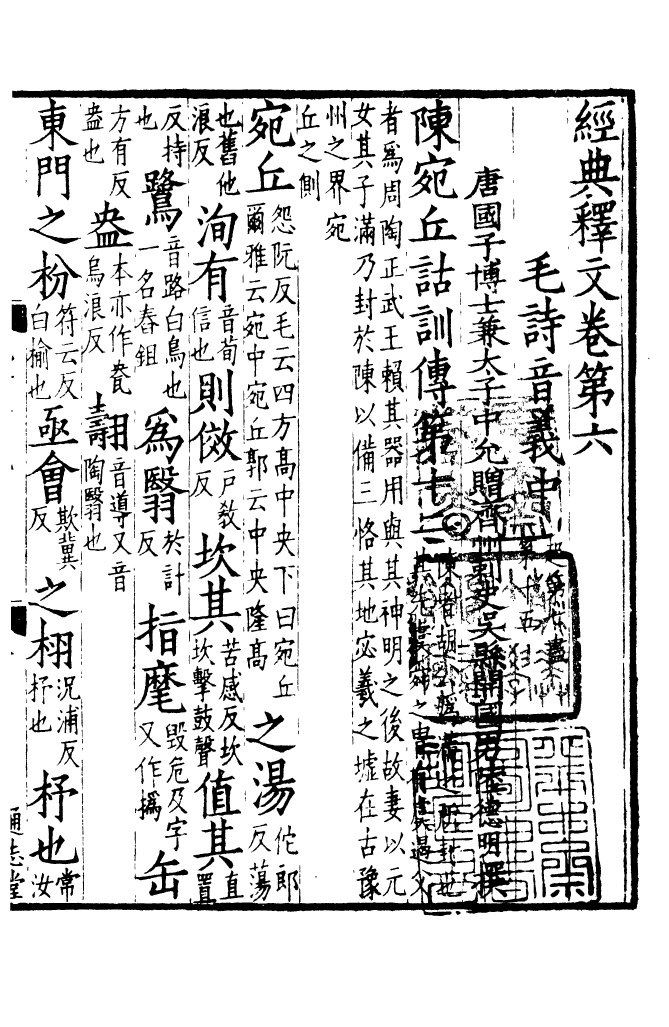 經典釋文卷第六
毛詩音義中
唐國子博士兼太子中允贈齊州刺史吳縣開國男陸德明撰
陳宛丘詁訓傳第十二 陳者胡公嬀滿之所封也其先虞舜之冑有虞遏父
者爲周陶正武王賴其器用與其神明之後故妻以元
女其子滿乃封於陳以備三恪其地宓羲之墟在古豫
州之界宛
丘之側
宛丘 怨阮反毛云四方高中央下曰宛丘爾雅云宛中宛丘郭云中央隆高 之湯 佗郎反蕩
也舊他浪反 洵有 音荀信也 則傚 戸敎反 坎其 苦感反坎坎擊鼓聲 值其 直置
反持也 鷺 音路白鳥也一名舂鉏 爲翳 於計反 指麾 毀危反字又作撝 缶
方有反盎也 盎 本亦作瓫烏浪反 翿 音導又音陶翳也
東門之枌 符云反白榆也 亟會 欺冀反 之栩 況浦反杼也 杼也 常汝
通志堂